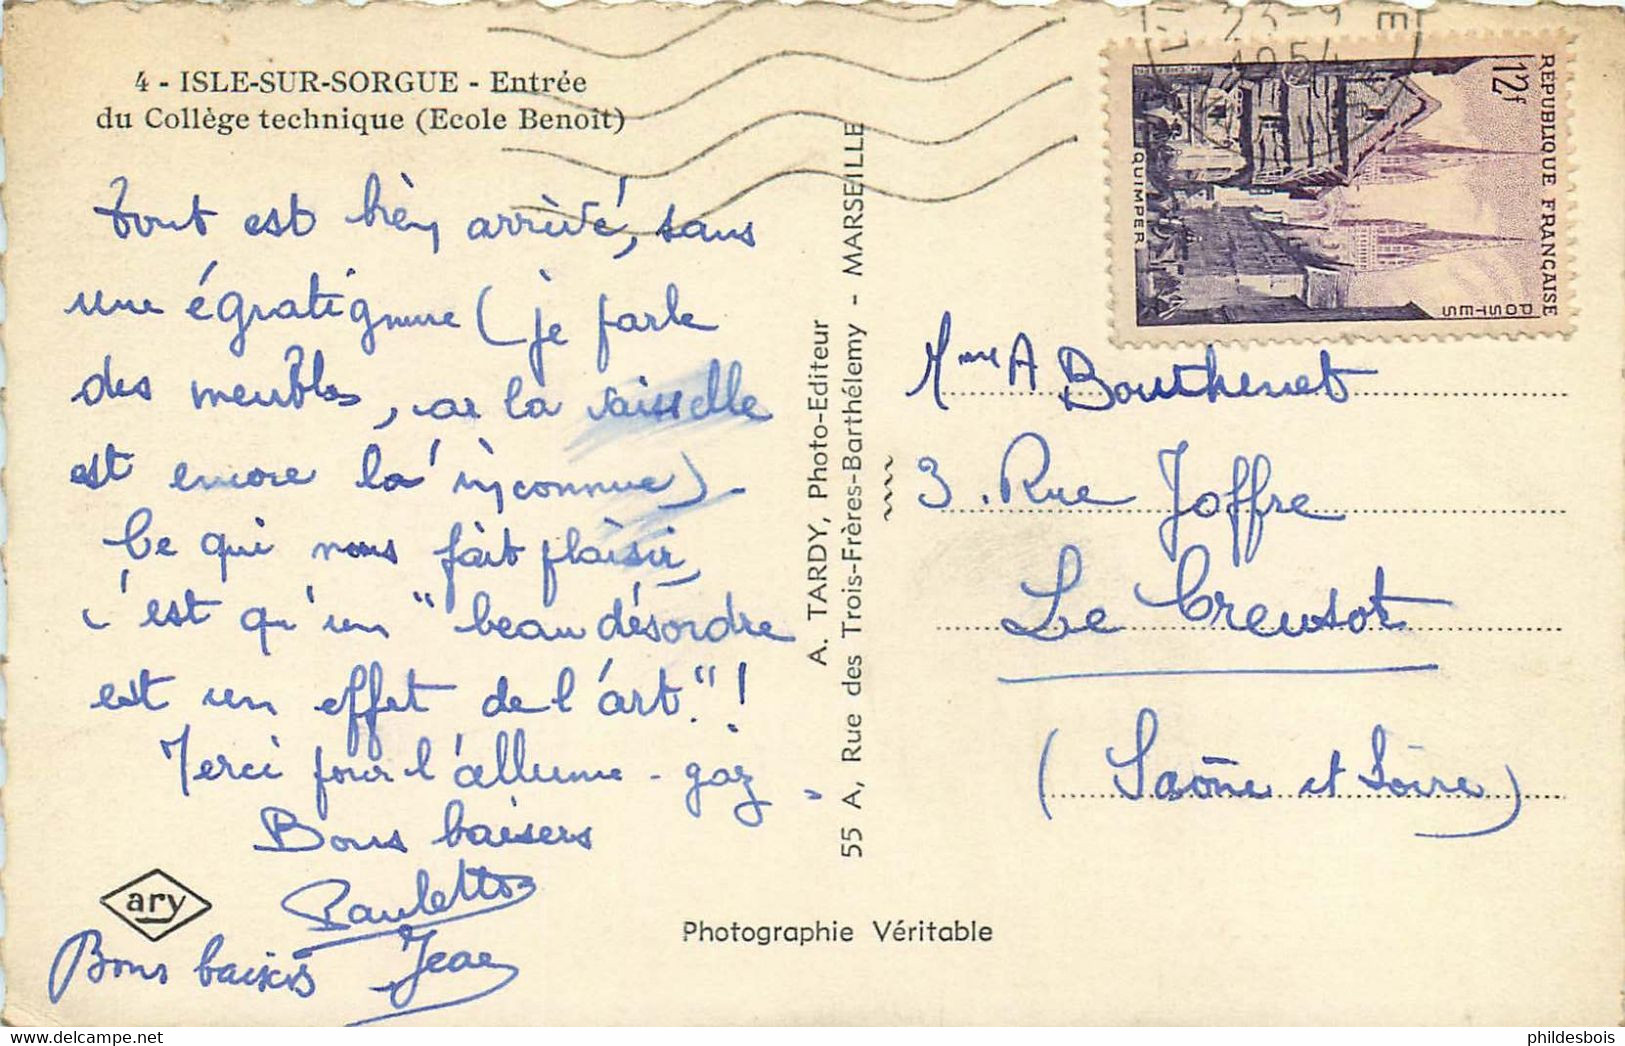 4 - ISLE-SUR-SORGUE - Entrée
du Collège technique (Ecole Benoît)
Tout est bien arrivé, sans
une égratignure (je parle
des meubles, car la vaisselle
est encore là inconnue).
Ce qui nous fait plaisir,
c'est qu'un "beau désordre
est un effet de l'art."!
Merci pour l'allume-gaz.
Bons baisers
Paulette
Bons baisers Jean
ary
Photographie Véritable
A. TARDY, Photo-Editeur
55 A, Rue des Trois-Frères-Barthélemy - MARSEILLE
23-9
1954
RÉPUBLIQUE FRANÇAISE
12f
POSTES
QUIMPER
Mme A Bouthenet
3. Rue Joffre
Le Creusot
(Saône et Loire)
phildesbois